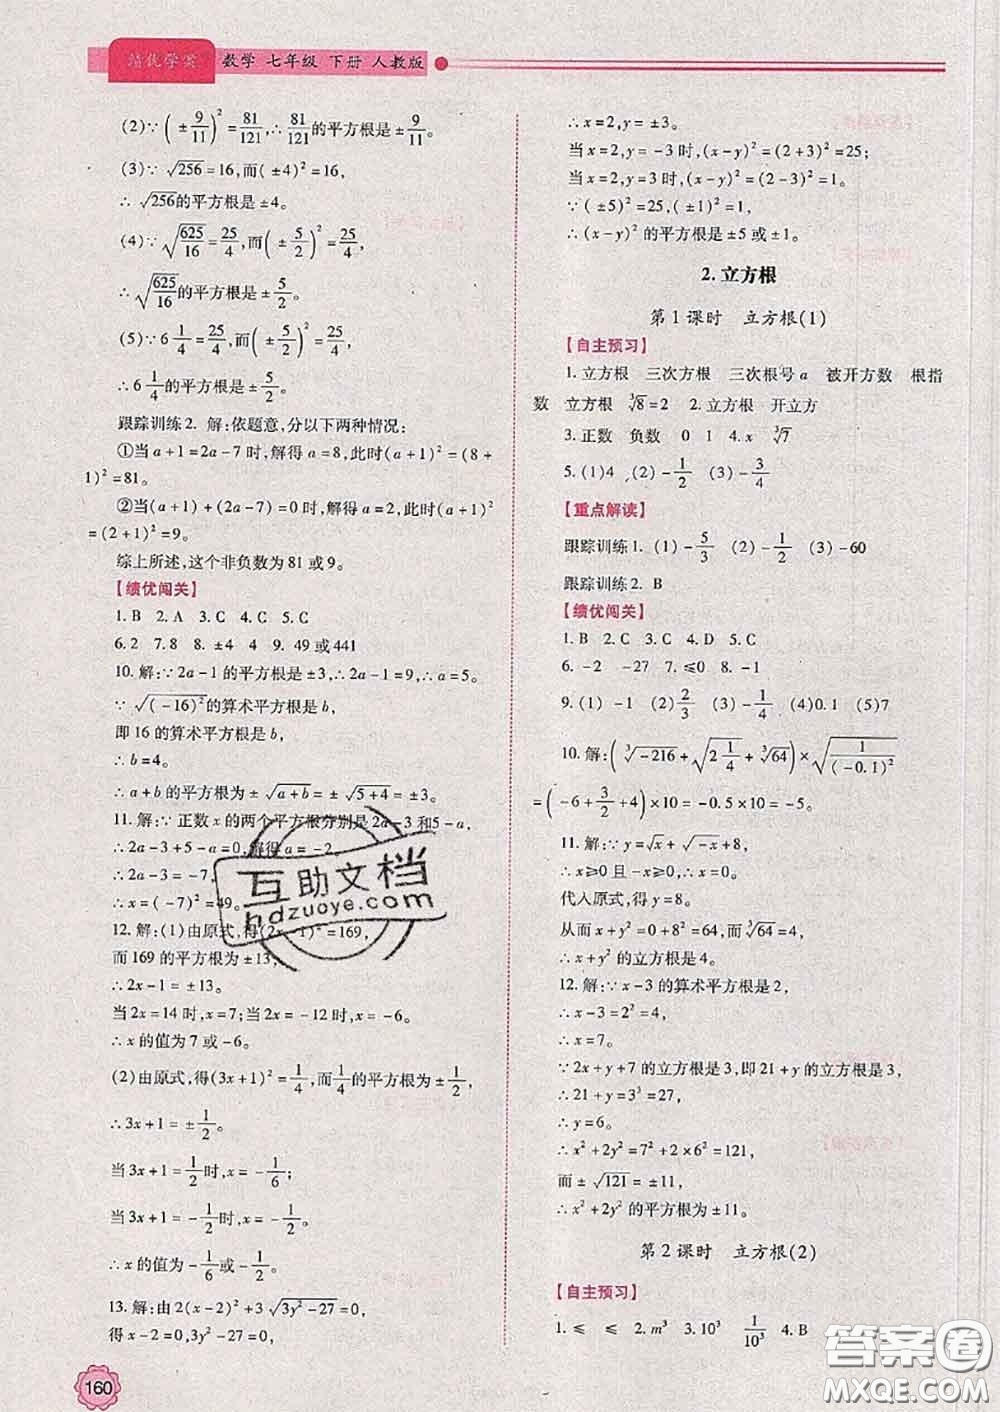 绩优学案 数学 七年级 下册 人教版
(2)∵(±9/11)²=81/121,∴81/121的平方根是±9/11。
(3)∵√256=16,而(±4)²=16,
∴√256的平方根是±4。
(4)∵√(625/16)=25/4,而(±5/2)²=25/4,
∴√(625/16)的平方根是±5/2。
(5)∵6 1/4=25/4,而(±5/2)²=25/4,
∴6 1/4的平方根是±5/2。
跟踪训练2. 解:依题意,分以下两种情况:
①当a+1=2a-7时,解得a=8,此时(a+1)²=(8+
1)²=81。
②当(a+1)+(2a-7)=0时,解得a=2,此时(a+1)²
=(2+1)²=9。
综上所述,这个非负数为81或9。
【绩优闯关】
1. B 2. A 3. C 4. C 5. C
6. 2 7. 8 8. ±4 9. 49或441
10. 解:∵2a-1的平方根是±3,∴2a-1=9,∴a=5。
∵√(-16)²的算术平方根是b,
即16的算术平方根是b,
∴b=4。
∴a+b的平方根为±√(a+b)=±√(5+4)=±3。
11. 解:∵正数x的两个平方根分别是2a-3和5-a,
∴2a-3+5-a=0,解得a=-2,
∴2a-3=-7,
∴x=(-7)²=49。
12. 解:(1)由原式,得(2x-1)²=169,
而169的平方根为±13,
∴2x-1=±13。
当2x=14时,x=7;当2x=-12时,x=-6。
∴x的值为7或-6。
(2)由原式,得(3x+1)²=1/4,而1/4的平方根为±1/2,
∴3x+1=±1/2。
当3x+1=1/2时,x=-1/6;
当3x+1=-1/2时,x=-1/2。
∴x的值为-1/6或-1/2。
13. 解:由2(x-2)²+3√(3y²-27)=0,
得x-2=0,3y²-27=0,
160
∴x=2,y=±3。
当x=2,y=-3时,(x-y)²=(2+3)²=25;
当x=2,y=3时,(x-y)²=(2-3)²=1。
∵(±5)²=25,(±1)²=1,
∴(x-y)²的平方根是±5或±1。
2. 立方根
第1课时 立方根(1)
【自主预习】
1. 立方根 三次方根 三次根号a 被开方数 根指
数 立方根 ³√8=2 2. 立方根 开立方
3. 正数 负数 0 1 4. x ³√7
5. (1)4 (2)-1/2 (3)-3/4
【重点解读】
跟踪训练1. (1)-5/3 (2)-1/2 (3)-60
跟踪训练2. B
【绩优闯关】
1. B 2. C 3. C 4. D 5. C
6. -2 -27 7. ≤0 8. -1
9. (1)-1 (2)2/3 (3)-1/4 (4)0.1 (5)7
10. 解:(³√-216+√(2 1/4)+³√64)×√(1/(-0.1)²)
=(-6+3/2+4)×10=-0.5×10=-5。
11. 解:∵y=√x+√-x+8,
∴x≥0且-x≥0,∴x=0。
代入原式,得y=8。
从而x+y²=0+8²=64,而³√64=4,
∴x+y²的立方根是4。
12. 解:∵x-3的算术平方根是2,
∴x-3=2²=4,
∴x=7。
∵2x+y+7的立方根是3,即21+y的立方根是3,
∴21+y=3³=27,
∴y=6。
∴x²+2y²=7²+2×6²=121,
而±√121=±11,
∴x²+2y²的平方根为±11。
第2课时 立方根(2)
【自主预习】
1. ≤ ≤ 2. m³ 3. 10³ 1/10³ 4. B
互助文档
hdzuoye.com
答案圈
MXQE.COM